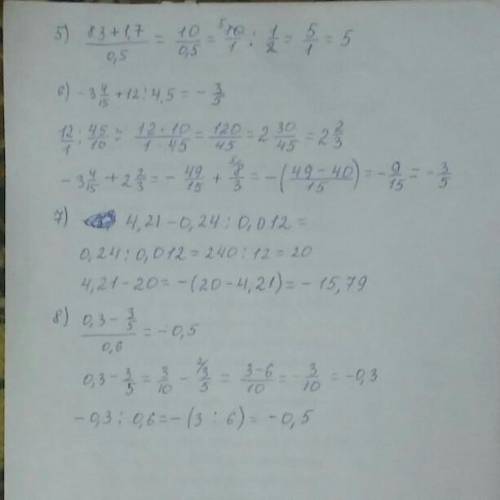 5) (8,3+1,7)/0,5 = 10/0,5 = 10/1 : 1/2 = 5/1 = 5
6) -3 4/15 + 12 : 4,5 = - 3/5
12/1 : 45/10 = (12·10)/(1·45) = 120/45 = 2 30/45 = 2 2/3
-3 4/15 + 2 2/3 = - 49/15 + 8/3 = -((49-40)/15) = - 9/15 = - 3/5
7) 4,21-0,24:0,012=
0,24:0,012=240:12=20
4,21-20=-(20-4,21)=-15,79
8) (0,3 - 3/5)/0,6 = -0,5
0,3 - 3/5 = 3/10 - 3/5 = (3-6)/10 = - 3/10 = -0,3
-0,3:0,6=-(3:6)=-0,5